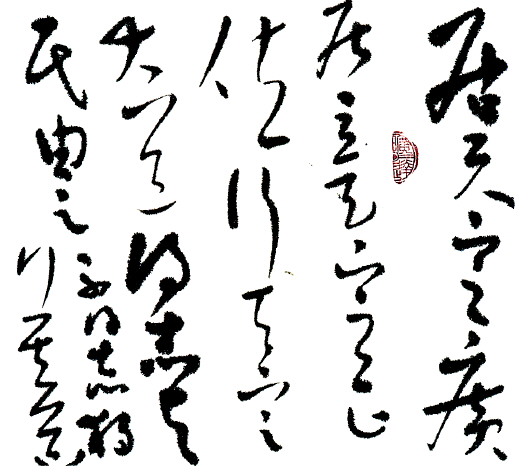 居天下之廣
居立天下之正
位行天下之
大道得志與
民由之
不得志獨
行其道